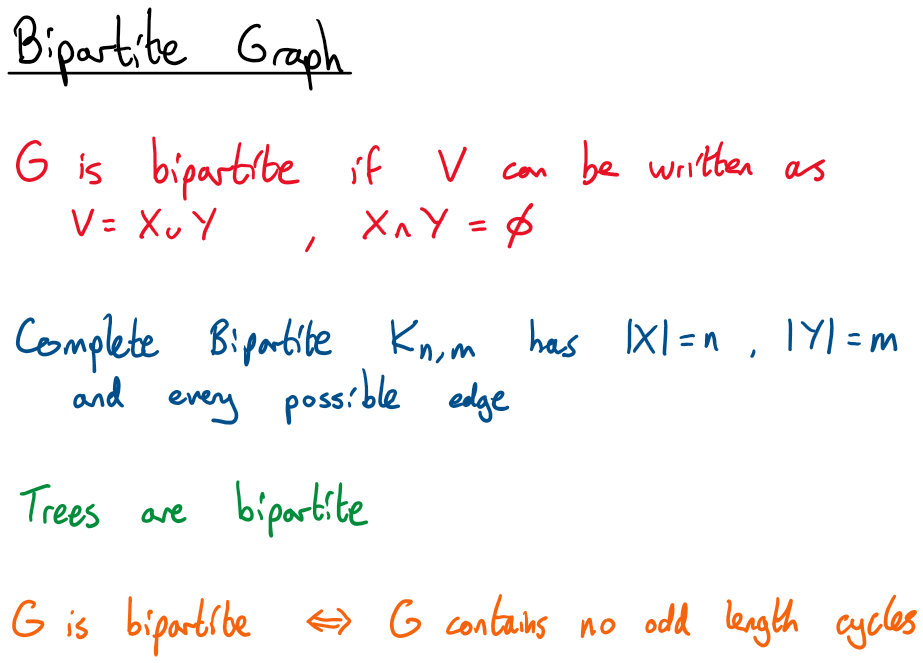 Bipartite Graph
G is bipartite if V can be written as
V = X ∪ Y , X ∩ Y = ∅
Complete Bipartite Kₙ,ₘ has |X| = n , |Y| = m
and every possible edge
Trees are bipartite
G is bipartite ⇔ G contains no odd length cycles